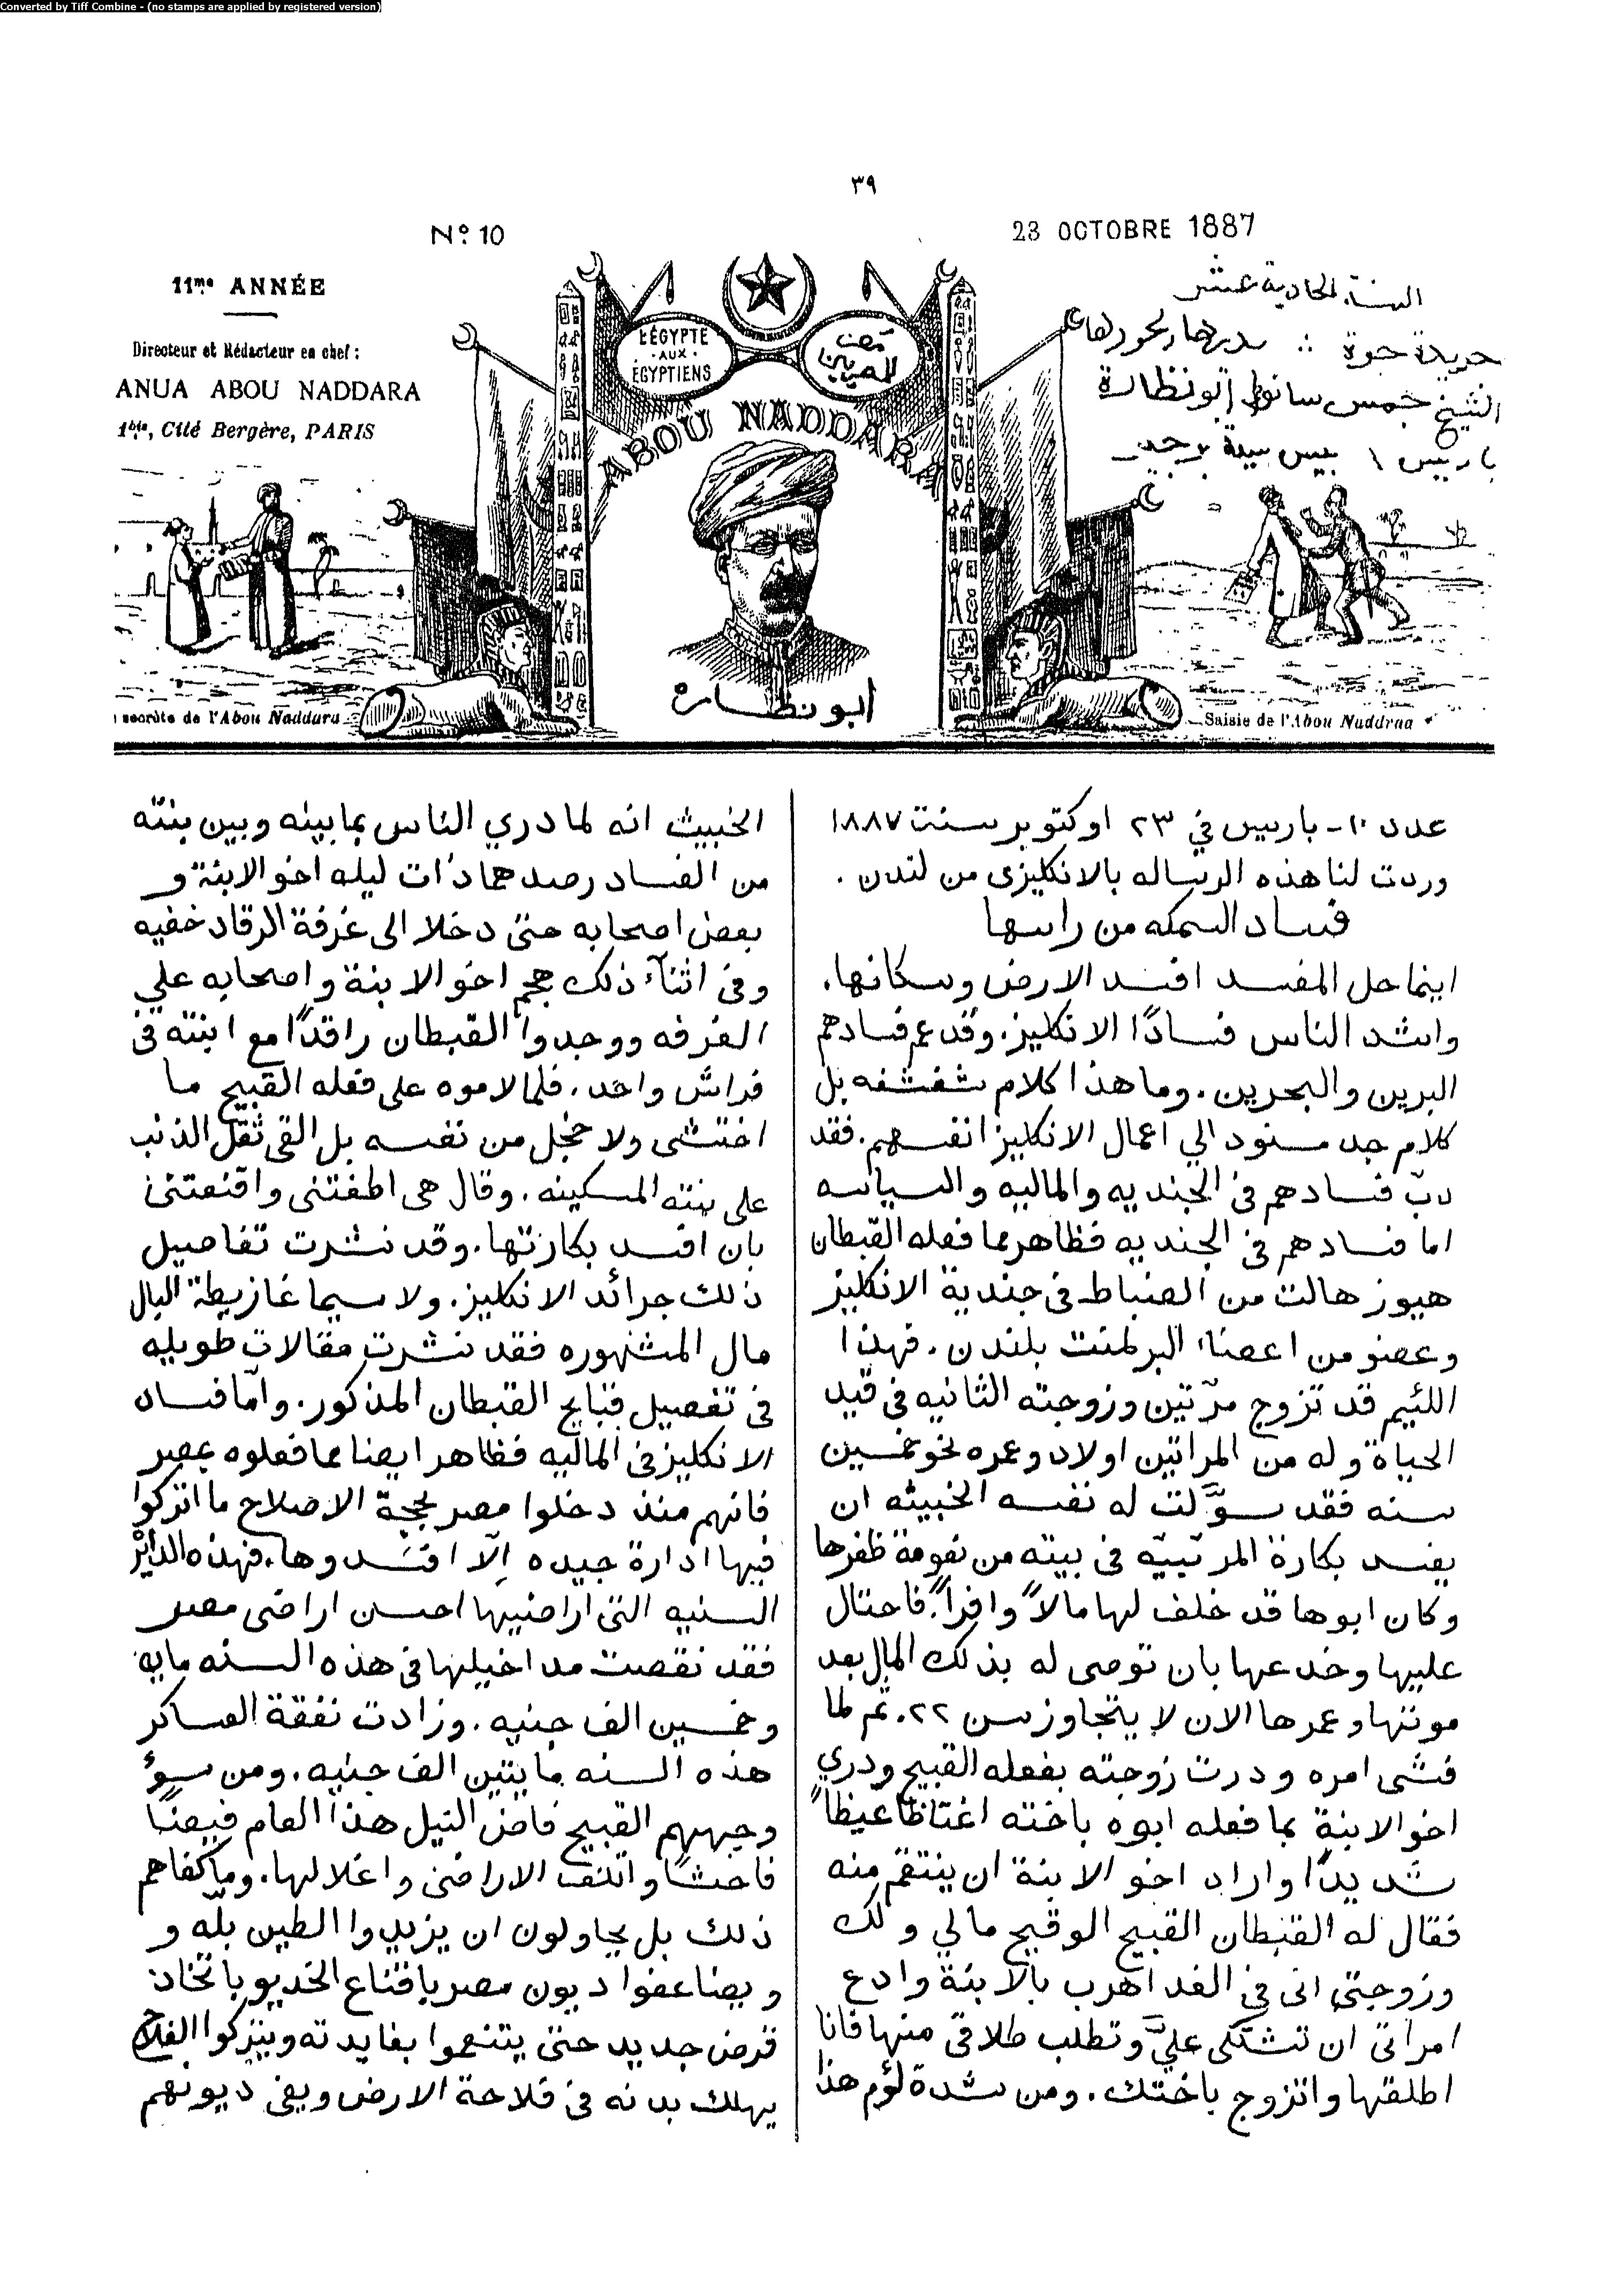 Converted by Tiff Combine - (no stamps are applied by registered version)
٣٩
Nº 10
23 OCTOBRE 1887
11me ANNÉE
Directeur et Rédacteur en chef :
ANUA ABOU NADDARA
1bis, Cité Bergère, PARIS
L'ÉGYPTE
AUX
ÉGYPTIENS
مصر
للمصريين
ABOU NADDARA
السنة الحادية عشر
جريدة حرة : مديرها ومحررها
الشيخ جمس سانوا ابو نظارة
باريس ١ بيس سيتة برجير
secrète de l'Abou Naddara
ابو نظاره
Saisie de l'Abou Naddraa
عدد ١٠ـ باريس في ٢٣ اوكتوبر سنت ١٨٨٧
وردت لنا هذه الرساله بالانكليزى من لندن .
فساد السمكه من راسها
اينما حل المفسد افسد الارض وسكانها.
واشد الناس فسادًا الانكليز. وقد عم فسادهم
البرين والبحرين. وما هذا كلام شفشفه بل
كلام جد مسنود الي اعمال الانكليز انفسهم. فقد
دبّ فسادهم فى الجنديه والماليه والسياسه
اما فسادهم فى الجنديه فظاهر مما فعله القبطان
هيوز هالت من الضباط فى جندية الانكليز
وعضو من اعضاء البرلمنت بلندن. فهذا
اللئيم قد تزوج مرّتين وزوجته الثانيه فى قيد
الحياة وله من المراتين اولاد وعمره نحو خمسين
سنه فقد سوّلت له نفسه الخبيثه ان
يفسد بكارة المرتبيّه فى بيته من نعومة ظفرها
وكان ابوها قد خلف لها مالاً وافراً. فاحتال
عليها وخدعها بان توصى له بذلك المال بعد
موتها وعمرها الان لا يتجاوز سن ٢٢. ثم لما
فشى امره ودرت زوجته بفعله القبيح ودري
اخو الابنة بما فعله ابوه باخته اغتاظا غيظاً
شديدًا واراد اخو الابنة ان ينتقم منه
فقال له القبطان القبيح الوقيح مالي ولك
وزوجتي انى في الغد اهرب بالابنة وادع
امراتى ان تشتكى عليّ وتطلب طلاقى منها فانا
اطلقها واتزوج باختك. ومن شدة لؤم هذا
الخبيث انه لما دري الناس بما بينه وبين بنته
من الفساد رصدهما ذات ليله اخو الابنة و
بعض اصحابه حتى دخلا الى غرفة الرقاد خفيه
وفى اثنآء ذلك هجم اخو الابنة واصحابه علي
الغرفه ووجدوا القبطان راقدًا مع ابنته فى
فراش واحد. فلما لاموه على فعله القبيح ما
اختشى ولا خجل من نفسه بل القى ثقل الذنب
على بنته المسكينه. وقال هى اطغتنى واقنعتنى
بان افسد بكارتها. وقد نشرت تفاصيل
ذلك جرائد الانكليز. ولا سيما غازيطة البال
مال المشهوره فقد نشرت مقالات طويله
فى تفصيل قبايح القبطان المذكور. وامّا فساد
الانكليز فى الماليه فظاهر ايضا مما فعلوه بمصر
فانهم منذ دخلوا مصر بحجة الاصلاح ما اتركوا
فيها ادارة جيده الّا افسدوها. فهذه الدايرة
السنيه التى اراضيها احسن اراضى مصر
فقد نقصت مداخيلها فى هذه السنه مايه
وخمسين الف جنيه. وزادت نفقة العساكر
هذه السنه مايتين الف جنيه. ومن سوء
وجههم القبيح فاض النيل هذا العام فيضًا
فاحشًا واتلف الاراضى واغلالها. وما كفاهم
ذلك بل يحاولون ان يزيدوا الطين بلّه و
ويضاعفوا ديون مصر باقناع الخديو باتخاذ
قرض جديد حتى يتنعموا بفايدته ويتركوا الفلاح
يهلك بدنه فى فلاحة الارض ويفى ديونهم